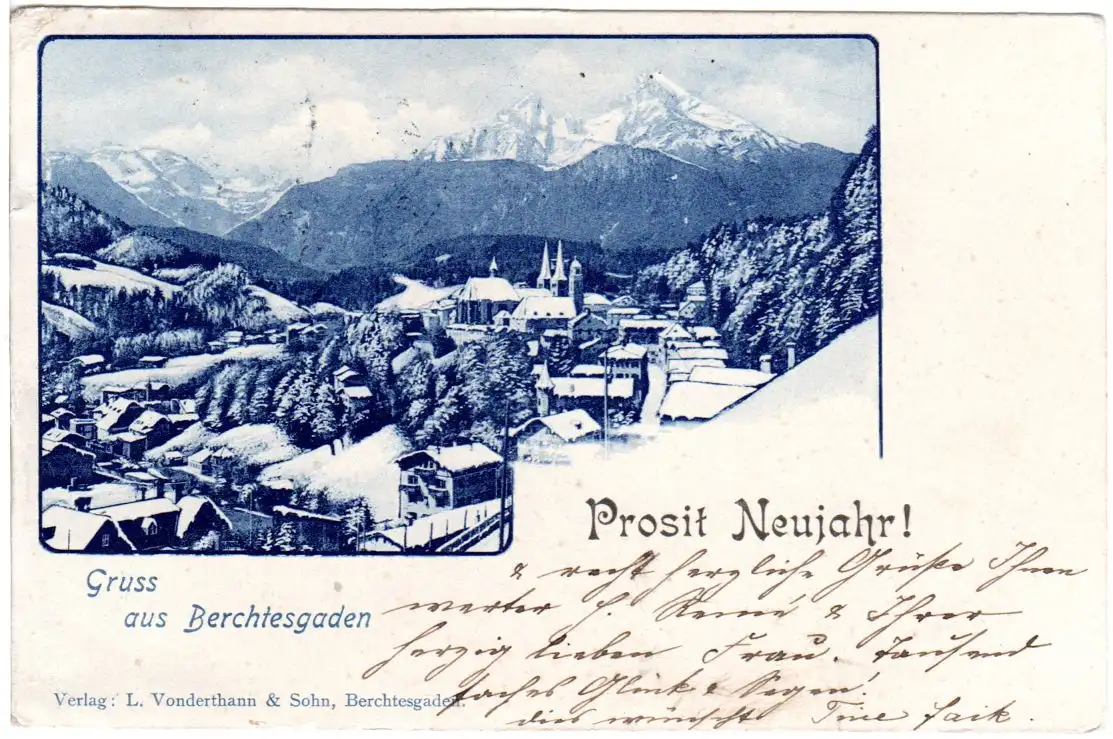 Prosit Neujahr!
& recht herzliche Grüße Ihnen
werter H. René & Ihrer
herzig lieben Frau. Tausend
faches Glück & Segen!
dies wünscht Tine
Gruss
aus Berchtesgaden
Verlag: L. Vonderthann & Sohn, Berchtesgaden.